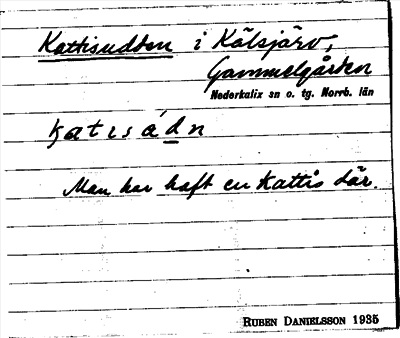 Kattisudden i Kälsjärv,
Gammelgården
Nederkalix sn o. tg. Norrb. län
katısádn
Man har haft en Kattis där.
RUBEN DANIELSSON 1935